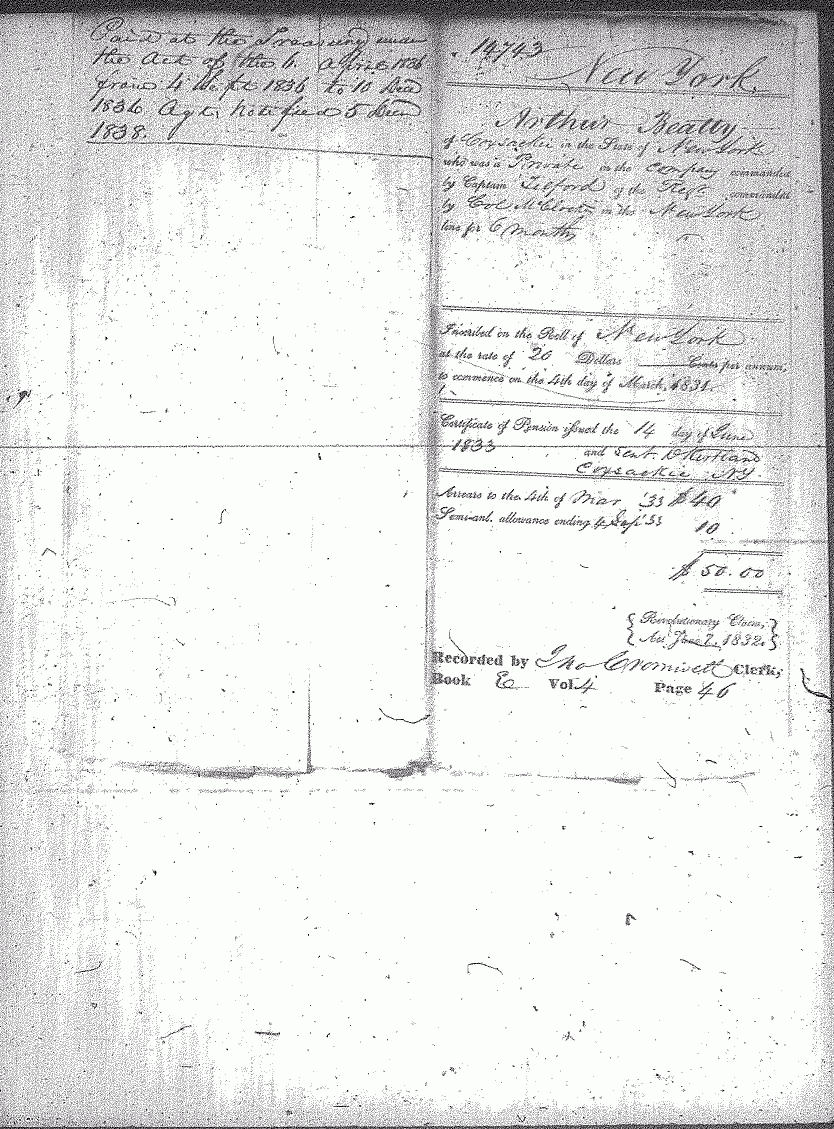 Paid at the Treasury under
the Act of the 6 April 1838
from 4 Sept 1836 to 10 Dec
1836 Agt. Notified 5 Decr
1838.
14743
New York.
Arthur Beatty
of Coxsackie in the State of New York
who was a Private in the Company commanded
by Captain Telford of the Regt. commanded
by Col McCloety in the New York
line for 6 months
Inscribed on the Roll of New York
at the rate of 20 Dollars Cents per annum,
to commence on the 4th day of March, 1831.
Certificate of Pension issued the 14 day of June
1833 and sent. D Kirtland
Coxsackie NY.
Arrears to the 4th of Mar '33 $ 40
Semi-anl. allowance ending 4 Sep '33 10
$ 50.00
Revolutionary Claim,
Act June 7, 1832.
Recorded by Clerk,
Book E Vol. 4 Page 46